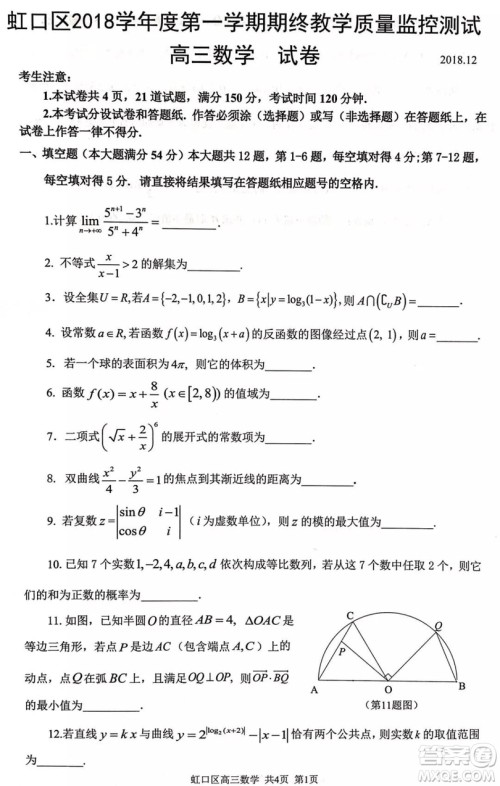 虹口区2018学年度第一学期期终教学质量监控测试
高三数学 试卷 2018.12
考生注意：
1.本试卷共 4 页，21 道试题，满分 150 分，考试时间 120 分钟.
2.本考试分设试卷和答题纸. 作答必须涂（选择题）或写（非选择题）在答题纸上，在
试卷上作答一律不得分.
一、填空题（本大题满分 54 分）本大题共 12 题，第 1-6 题，每空填对得 4 分；第 7-12 题，
每空填对得 5 分. 请直接将结果填写在答题纸相应题号的空格内.
1.计算 lim_{n→+∞} (5^{n+1}−3^n)/(5^n+4^n) = ________.
2. 不等式 x/(x−1) > 2 的解集为________.
3．设全集U = R,若A={−2,−1,0,1,2}，B={x|y=log₃(1−x)}, 则 A∩(∁_U B)=________.
4. 设常数 a∈R, 若函数 f(x)=log₃(x+a)的反函数的图像经过点(2, 1)，则 a=________.
5．若一个球的表面积为4π, 则它的体积为________.
6. 函数 f(x)=x+8/x (x∈[2,8)) 的值域为________.
7．二项式(√x+2/x)^6 的展开式的常数项为________.
8. 双曲线 x²/4−y²/3=1 的焦点到其渐近线的距离为________.
9. 若复数z=|sinθ i−1; cosθ i|（i 为虚数单位），则z 的模的最大值为________.
10. 已知 7 个实数1,−2,4,a,b,c,d 依次构成等比数列，若从这 7 个数中任取 2 个，则它
们的和为正数的概率为________.
11. 如图，已知半圆O 的直径 AB=4, ΔOAC 是
等边三角形，若点P 是边AC（包含端点A、C）上的
动点，点Q 在弧BC 上，且满足OQ⊥OP, 则OP·BQ
的最小值为________.
A O B C P Q
（第11题图）
12.若直线 y=kx 与曲线 y=2^{|log₂(x+2)|}−|x−1| 恰有两个公共点，则实数k 的取值范围
为________.
虹口区高三数学 共4页 第1页